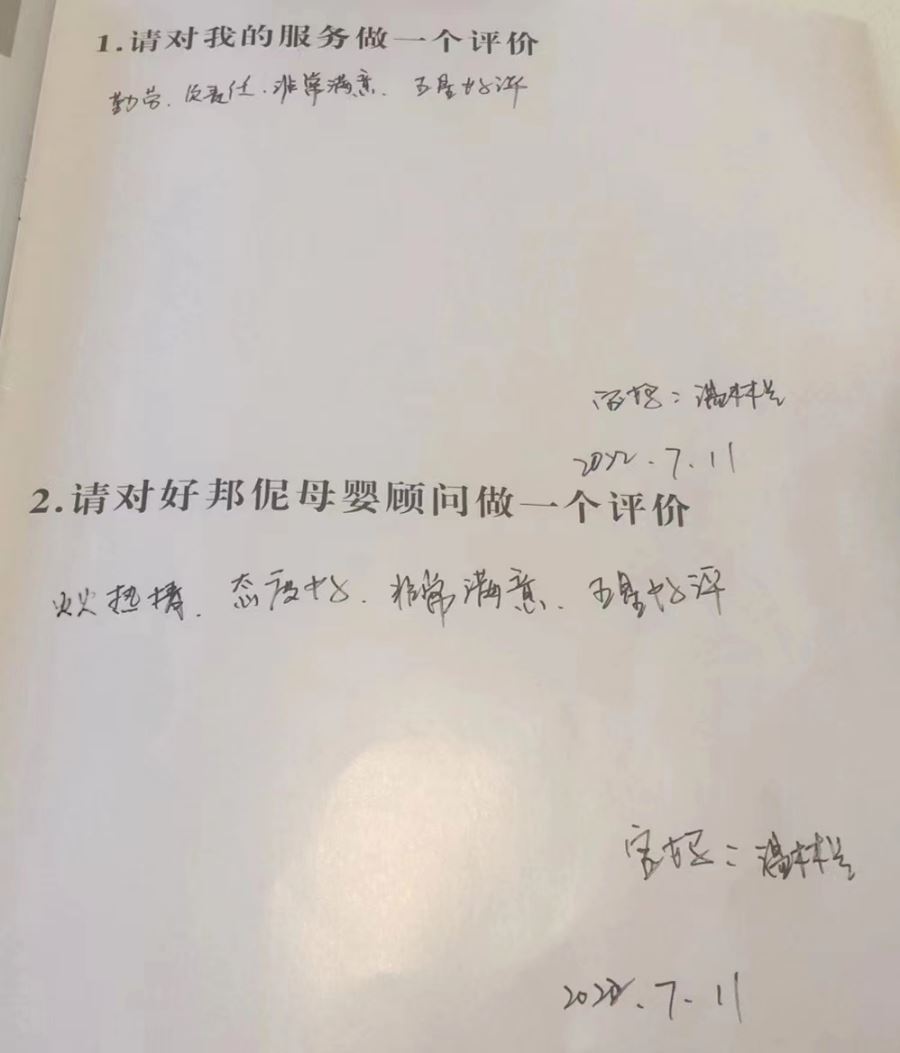 1.请对我的服务做一个评价
勤劳、负责任、非常满意、五星好评
宝妈：温林兰
2022.7.11
2.请对好邦伲母婴顾问做一个评价
热情、态度好、非常满意、五星好评
宝妈：温林兰
2022.7.11